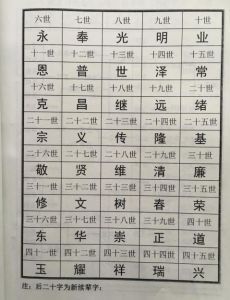 六世 七世 八世 九世 十世
永 奉 光 明 业
十一世 十二世 十三世 十四世 十五世
恩 普 世 泽 常
十六世 十七世 十八世 十九世 二十世
克 昌 继 远 绪
二十一世 二十二世 二十三世 二十四世 二十五世
宗 义 传 隆 基
二十六世 二十七世 二十八世 二十九世 三十世
敬 贤 维 清 廉
三十一世 三十二世 三十三世 三十四世 三十五世
修 文 树 春 荣
三十六世 三十七世 三十八世 三十九世 四十世
东 华 崇 正 道
四十一世 四十二世 四十三世 四十四世 四十五世
玉 耀 祥 瑞 兴
注：后二十字为新续辈字；